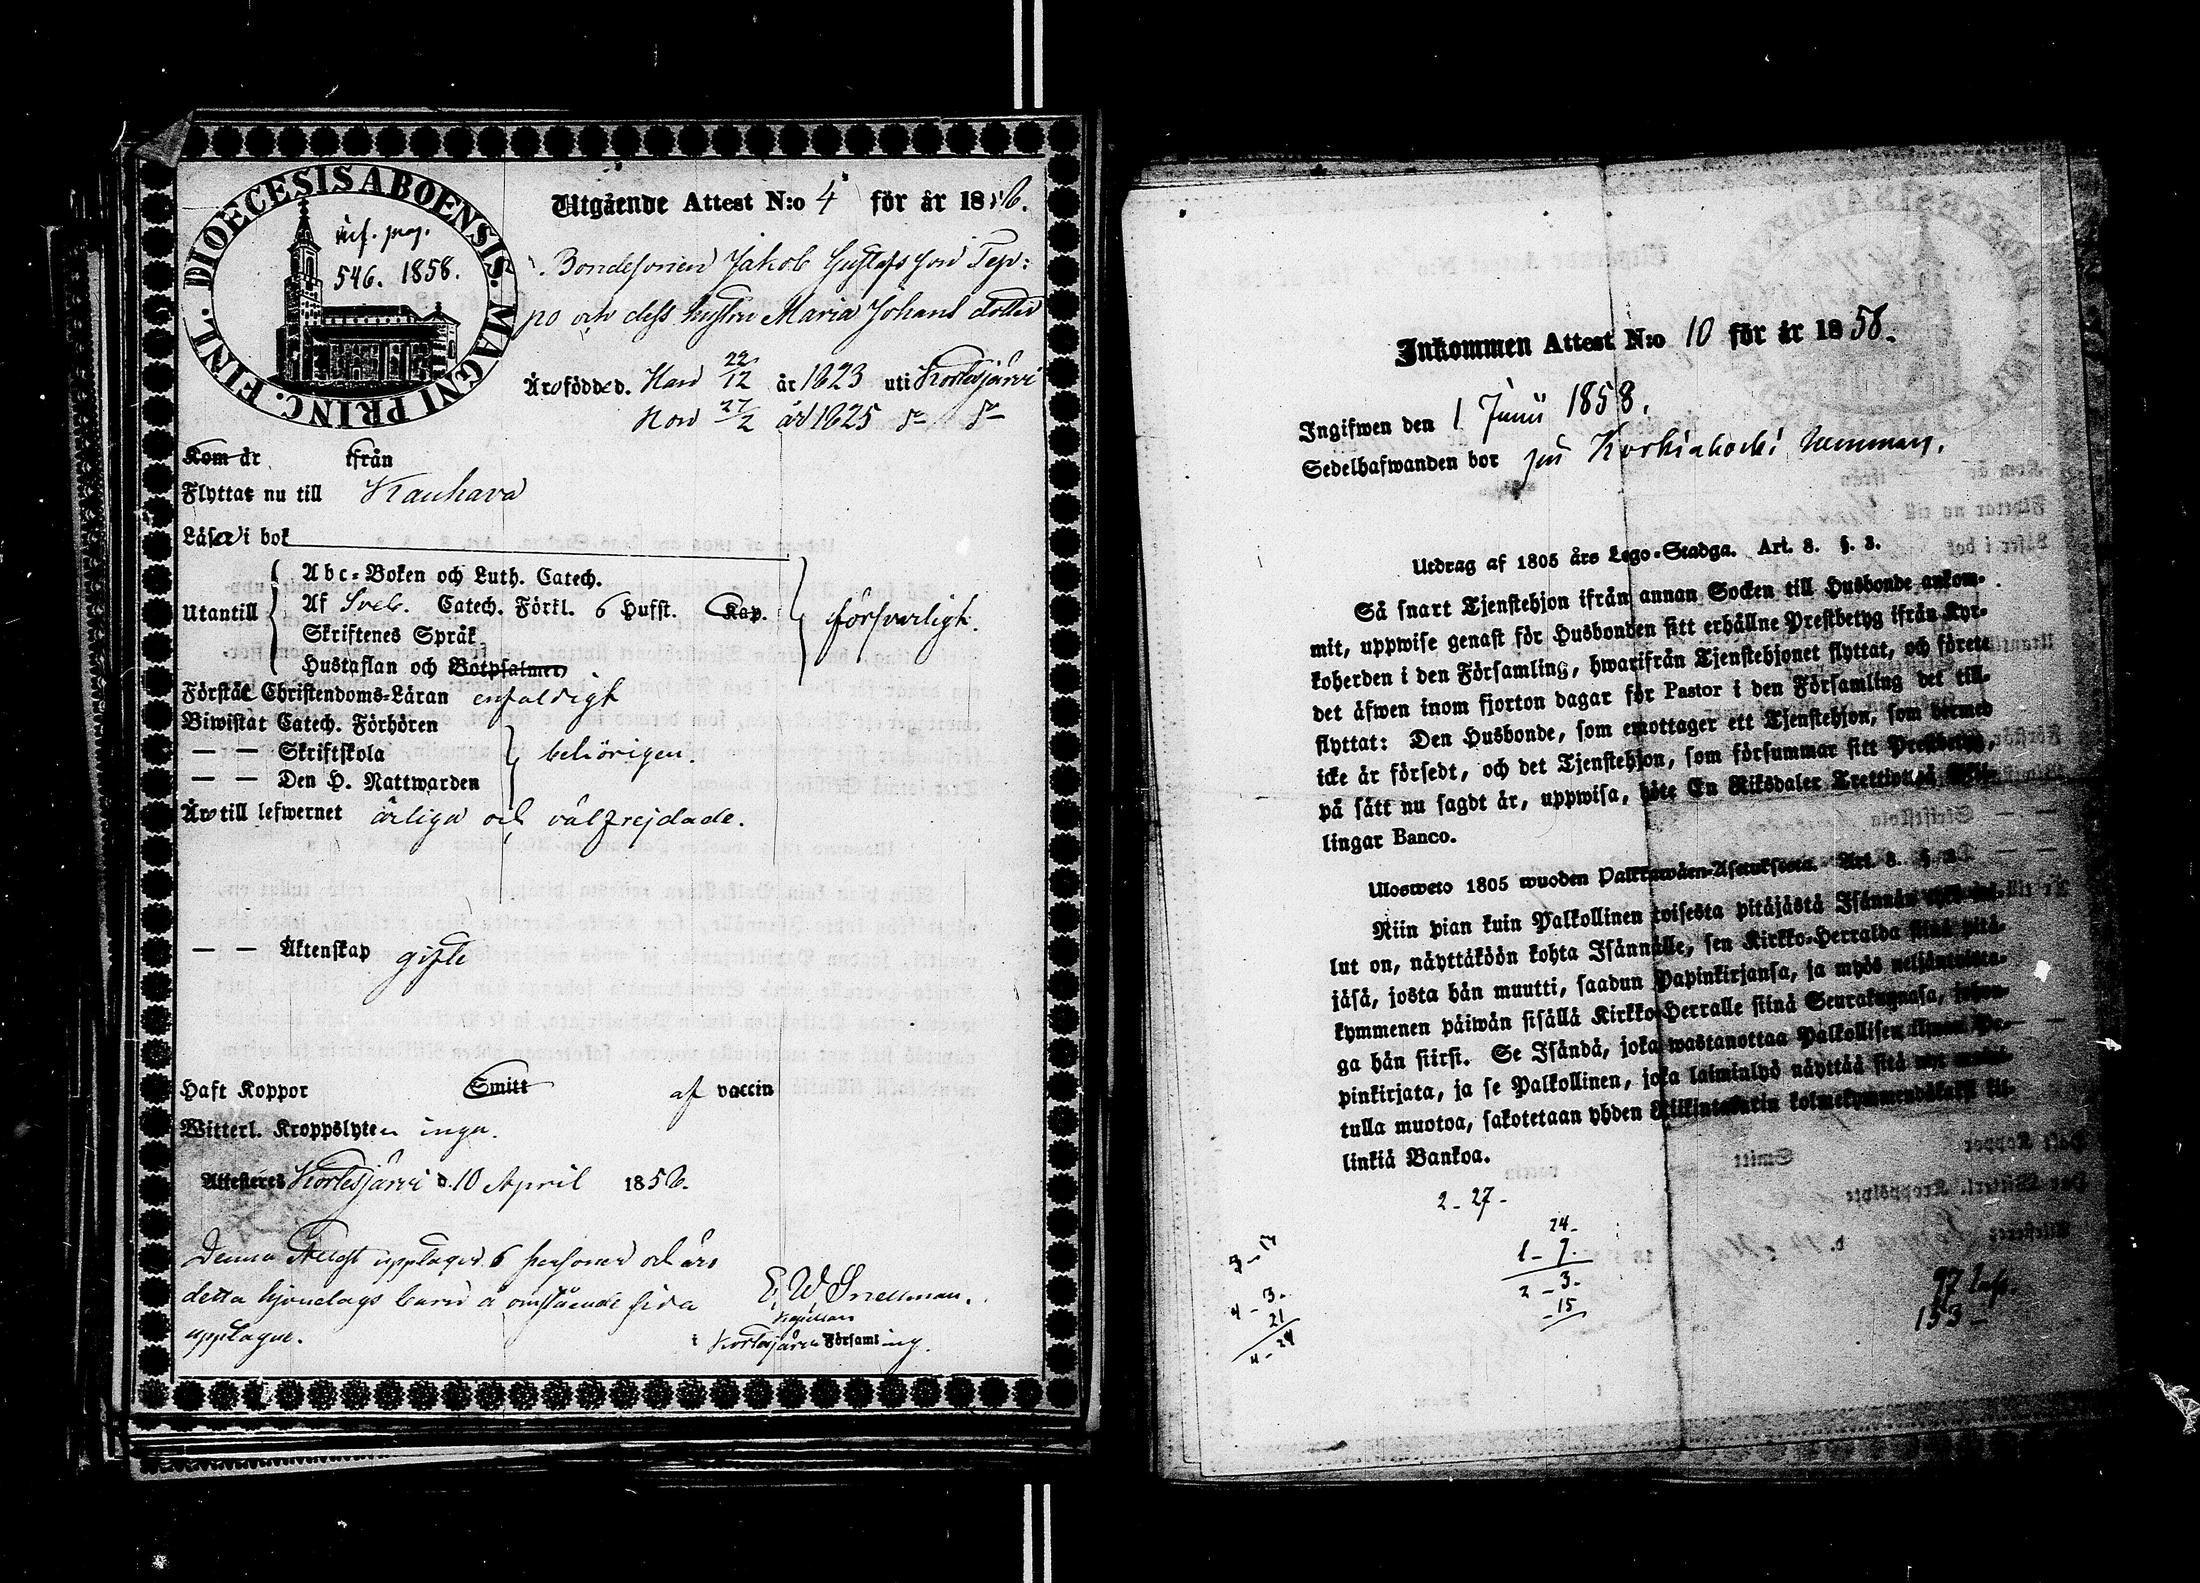 DIOECESIS ABOENSIS. MAGNI PRINC. FINL.
inf. pag.
546. 1858.
Utgående Attest N:o 4 för år 1856.
Bondesonen Jakob Gustafsson Tep:
po och dess hustru Maria Johans dotter
Äro födde d. Han 22/12 år 1823 uti Kortesjärvi
Hon 27/2 år 1825
Kom år ifrån
Flyttar nu till Kauhava
Läser i bok
Utantill
Abc-Boken och Luth. Catech.
Af Sveb. Catech. Förkl. 6 Hufst. Kap.
Skriftenes Språk
Hustaflan och Botpsalmer
försvarligt.
Förstår Christendoms-Läran enfaldigt
Biwistat Catech. Förhören
— — Skriftskola
— — Den H. Nattwarden
behörigen.
Äro till lefwernet ärliga och välfrejdade.
— — Äktenskap gifte
Haft Koppor Smitt af vaccin
Witterl. Kroppslyten inga.
Attesteres Kortesjärvi d. 10 April 1856.
Denna Attest upptager 6 personer och äro
detta hjonelags barn å omstående sida
upptagne.
E. W. Snellman.
Kapellan
i Kortesjärvi Församling.
Inkommen Attest N:o 10 för år 1858.
Ingifwen den 1 Junii 1858.
Sedelhafwanden bor
Utdrag af 1805 års Lego-Stadga. Art. 8. §. 3.
Så snart Tjenstehjon ifrån annan Socken till Husbonde ankom-
mit, uppwise genast för Husbonden sitt erhållne Prestbetyg ifrån Kyr-
koherden i den Församling, hwarifrån Tjenstehjonet flyttat, och förete
det äfwen inom fjorton dagar för Pastor i den Församling det till-
flyttat: Den Husbonde, som emottager ett Tjenstehjon, som dermed
icke är försedt, och det Tjenstehjon, som försummar sitt Prestbetyg,
på sätt nu sagdt är, uppwisa, böte En Riksdaler Trettiotvå Skil-
lingar Banco.
Ulosweto 1805 wuoden Palkkawäen-Asetuksesta. Art. 8. §. 3.
Niin pian kuin Palkollinen toisesta pitäjästä Isännän
lut on, näyttäköön kohta Isännälle, sen Kirkko-Herralda siinä pitä-
jäsä, josta hän muutti, saadun Papinkirjansa, ja myös neljäntoista-
kymmenen päiwän sisällä Kirkko-Herralle siinä Seurakunnasa, johon-
ga hän siirsi. Se Isändä, joka wastanottaa Palkollisen ilman Pa-
pinkirjata, ja se Palkollinen, joka laiminlyö näyttää sitä nyt
tulla muotoa, sakotetaan yhden Riikintaalarin kolmekymmendäkaksi kil-
linkiä Bankoa.
2 - 27 -
24 -
1 - 7 -
2 - 3 -
- 15
4 - 3 -
21
4 - 24
153 -